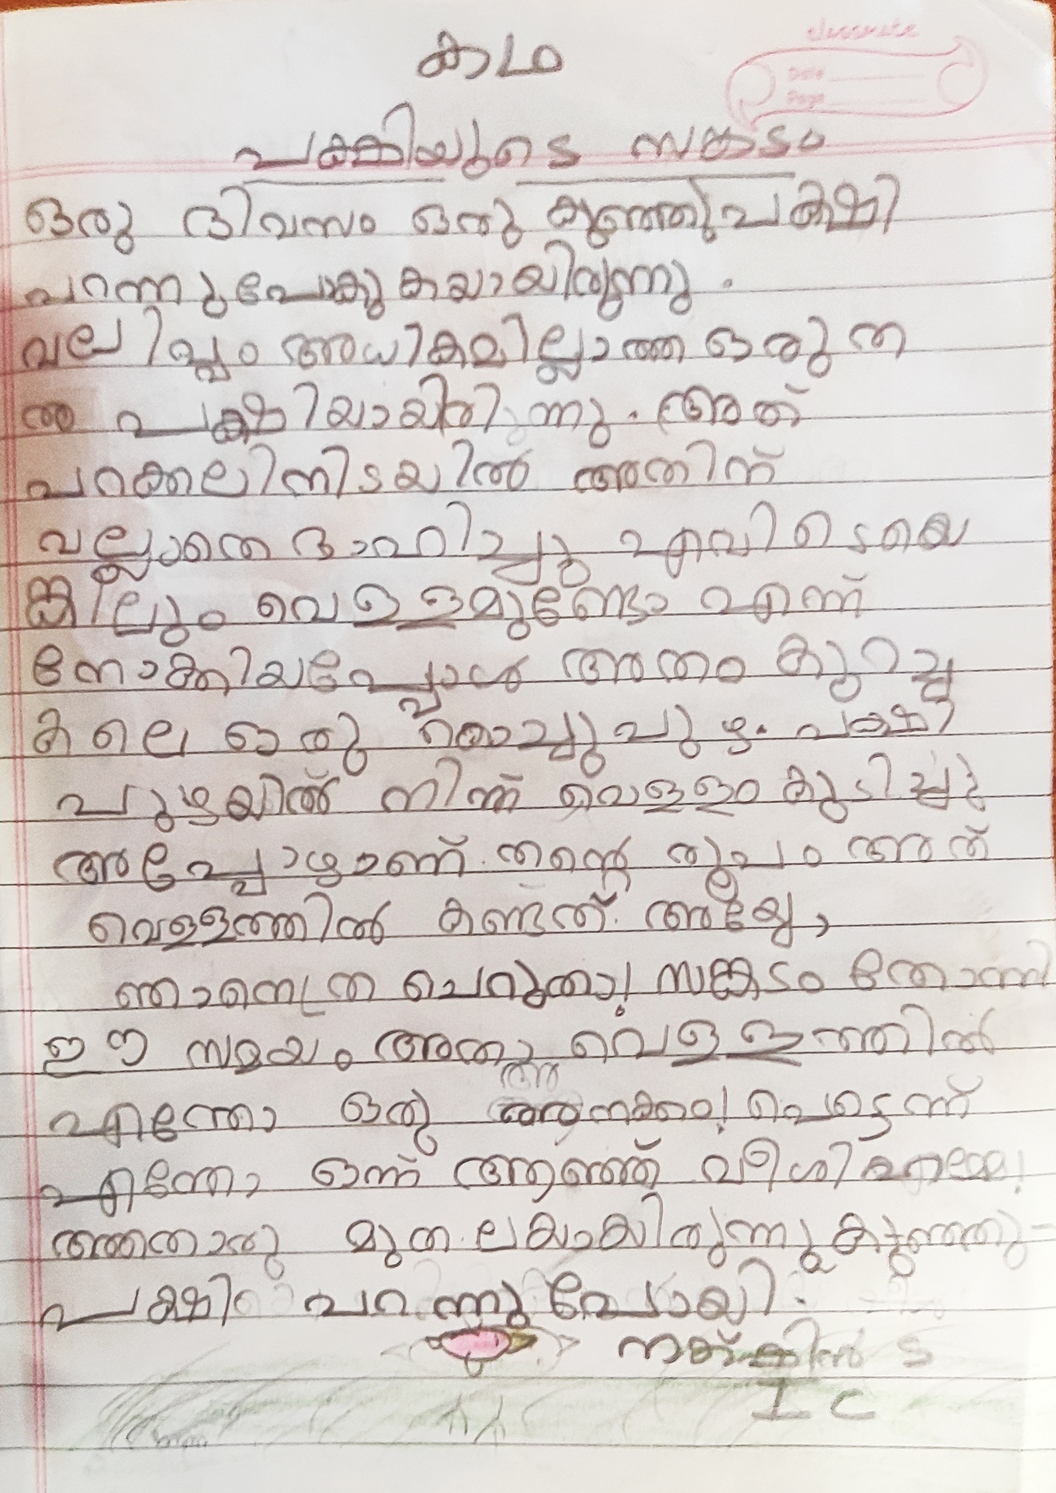 കഥ
classmate
Date
Page
പക്ഷിയുടെ സങ്കടം
ഒരു ദിവസം ഒരു കുഞ്ഞുപക്ഷി
പറന്നുപോകുകയായിരുന്നു.
വലിപ്പം അധികമില്ലാത്ത ഒരു ത
ത്ത പക്ഷിയായിരുന്നു. അത്
പറക്കലിനിടയിൽ അതിന്
വല്ലാതെ ദാഹിച്ചു എവിടെയെ
ങ്കിലും വെള്ളമുണ്ടോ എന്ന്
നോക്കിയപ്പോൾ അതാ കുറച്ച
കലെ ഒരു കൊച്ചുപുഴ. പക്ഷി
പുഴയിൽ നിന്ന് വെള്ളം കുടിച്ചു
അപ്പോഴാണ് തന്റെ രൂപം അത്
വെള്ളത്തിൽ കണ്ടത്. അയ്യേ,
ഞാനെത്ര ചെറുതാ! സങ്കടം തോന്നി
ഈ സമയം അതാ വെള്ളത്തിൽ
എന്തോ ഒരു അനക്കം! പെട്ടെന്ന്
എന്തോ ഒന്ന് ആഞ്ഞ് വീശി
അതൊരു മുതലയായിരുന്നു കുഞ്ഞു-
പക്ഷി പറന്നുപോയി.
I C